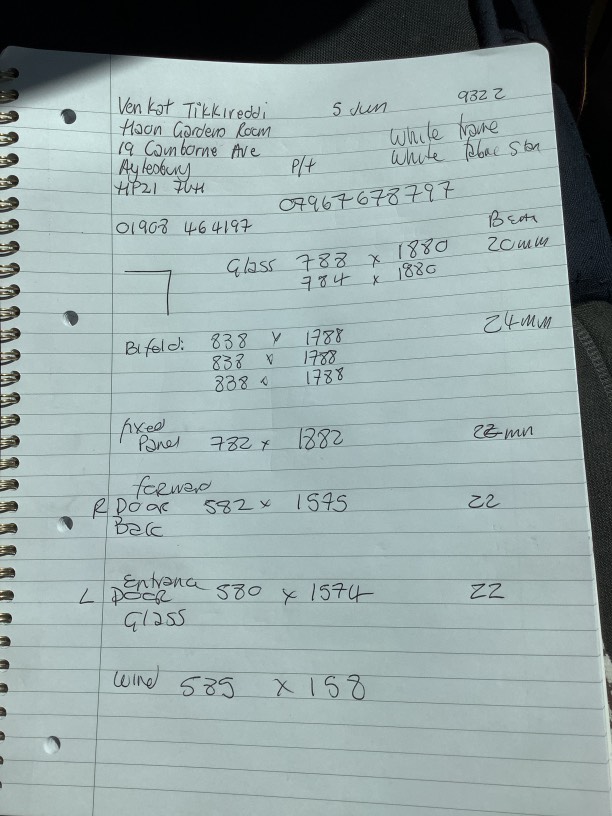 Venkat Tikkireddi 5 Jun 9322
Haon Gardens Room White frame
19 Camborne Ave White
Aylesbury P/t
HP21
07967678797
01908 464197
Glass 788 x 1880 20mm
784 x 1880
24mm
Bifold: 838 x 1788
838 x 1788
838 x 1788
fixed
Panel 782 x 1882 mm
forward
R Door 582 x 1575 22
Entrance
L Door 580 x 1574 22
Glass
Wind 585 x 158